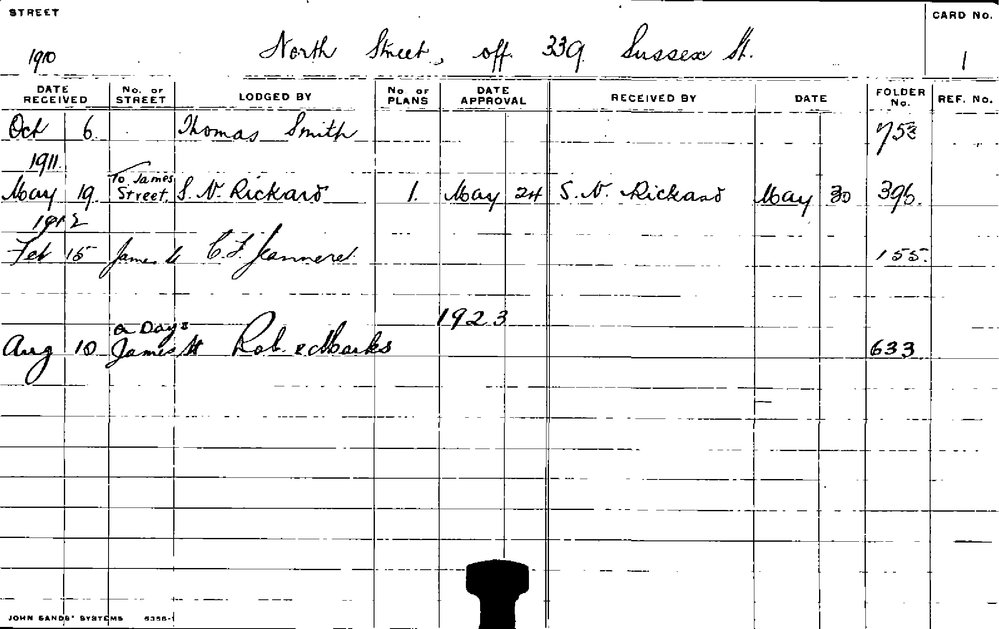 STREET
CARD No.
1
1910
North Street, off. 339 Sussex St.
DATE RECEIVED No. OF STREET LODGED BY No OF PLANS DATE APPROVAL RECEIVED BY DATE FOLDER No. REF. No.
Oct 6. Thomas Smith 753
1911.
To James
May 19. Street. S. N. Rickard 1. May 24 S. N. Rickard May 30 396.
1912
Feb 15 James St C. F. Jeanneret 155.
1923
& Days
Aug 10 James St Rob. & Marks 633
JOHN SANDS' SYSTEMS 6356-1